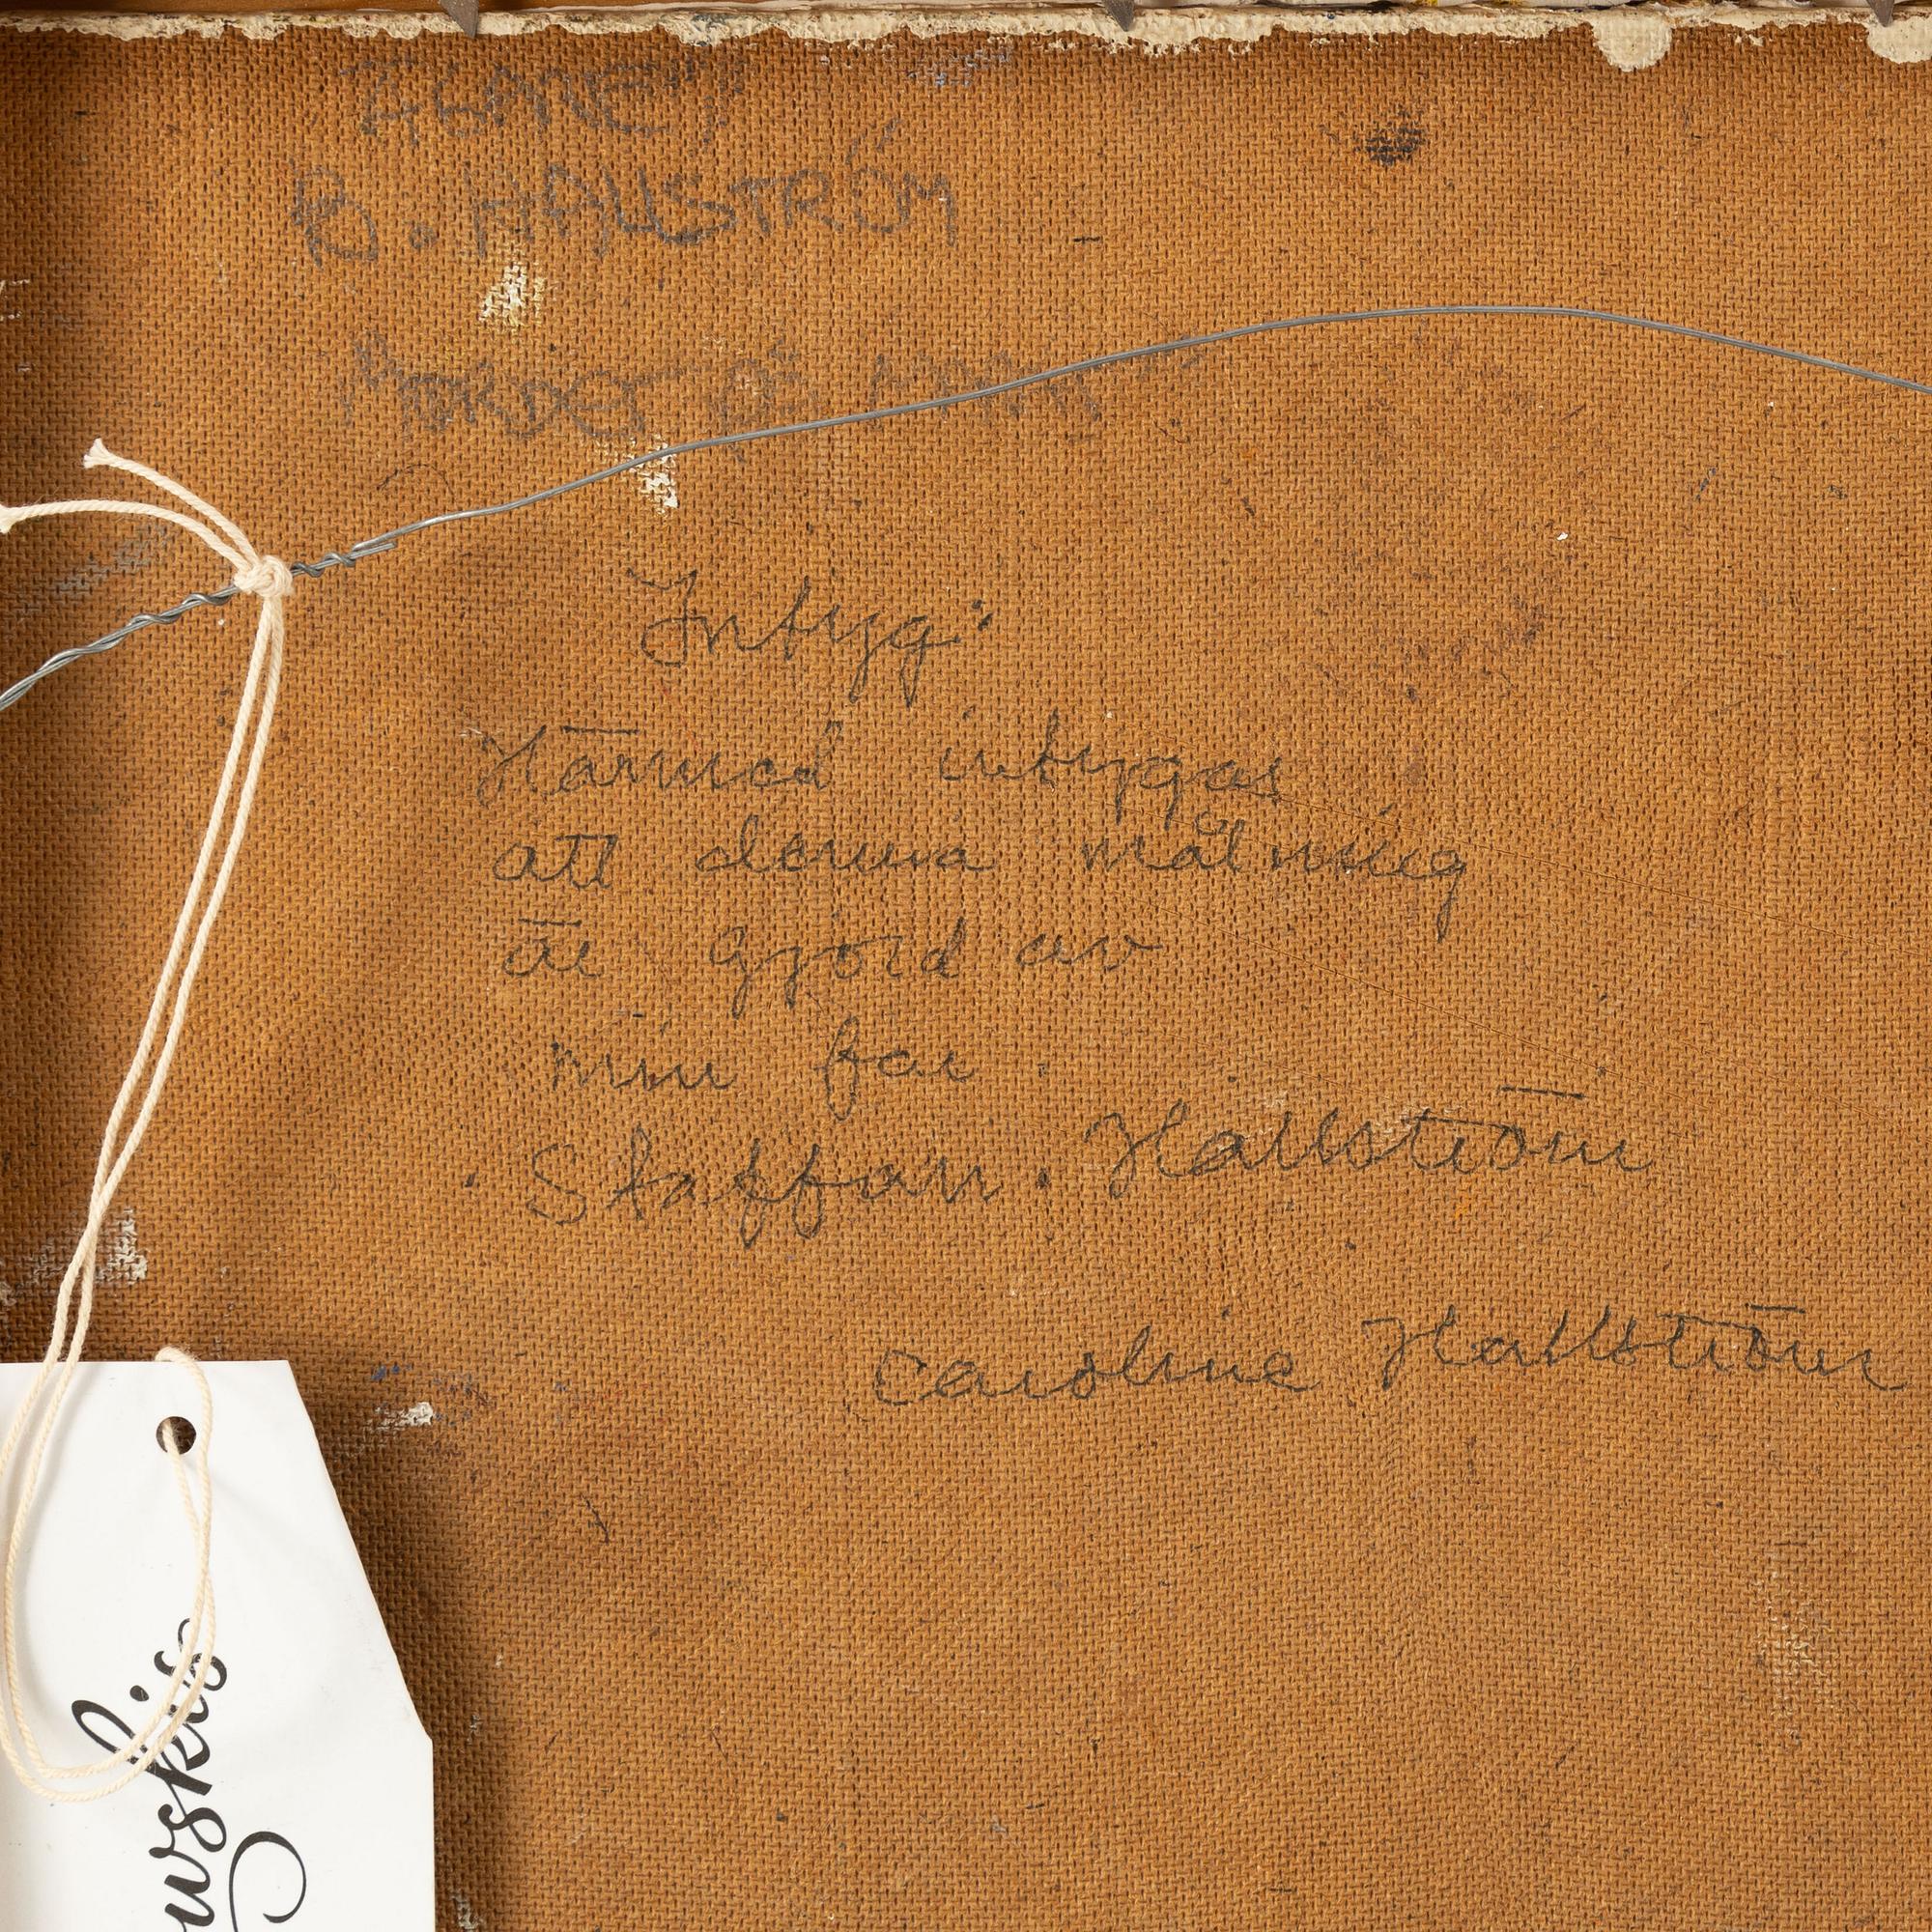 B. HALLSTRÖM
Intyg:
Härmed intygas
att denna målning
är gjord av
min far.
Staffan. Hallström
Caroline Hallström
wskis